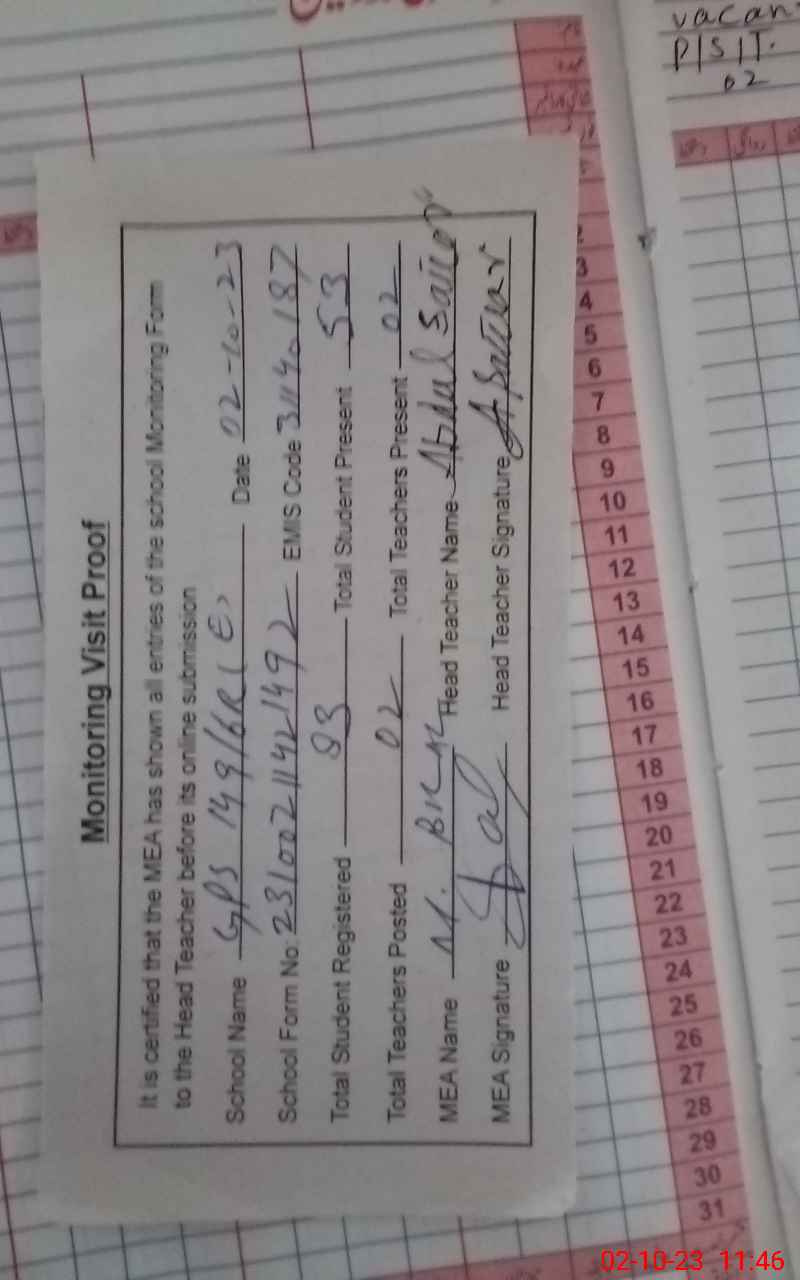 Monitoring Visit Proof
It is certified that the MEA has shown all entries of the school Monitoring Form
to the Head Teacher before its online submission
School Name GPS 149/6R (E) Date 02-10-23
School Form No: 23100211421492 EMIS Code 31140187
Total Student Registered 83 Total Student Present 53
Total Teachers Posted 02 Total Teachers Present 02
MEA Name M. Head Teacher Name Abdul Sattar
MEA Signature Head Teacher Signature A Sattar
vacant
P/S/T.
02
2
3
4
5
6
7
8
9
10
11
12
13
14
15
16
17
18
19
20
21
22
23
24
25
26
27
28
29
30
31
02-10-23 11:46